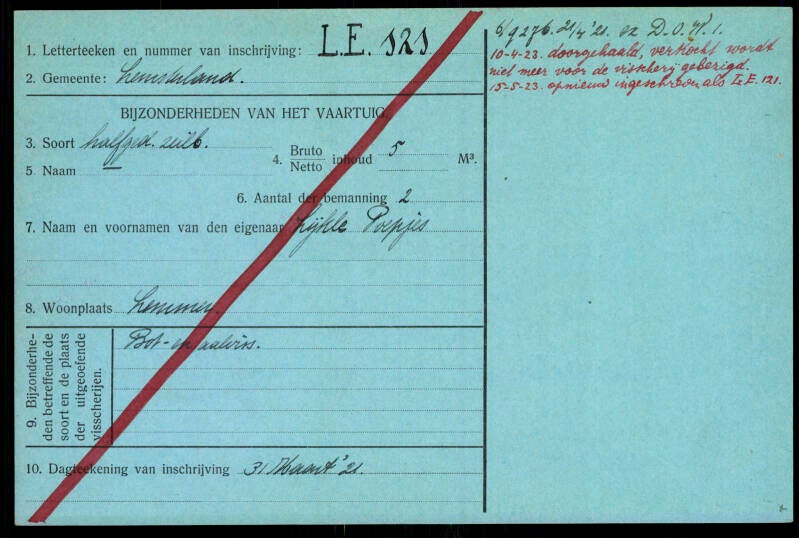 1. Letterteeken en nummer van inschrijving: L.E. 121
2. Gemeente: Lemsterland.
BIJZONDERHEDEN VAN HET VAARTUIG.
3. Soort halfged. zeilb.
4. Bruto Netto inhoud 5 M³.
5 Naam —
6. Aantal der bemanning 2
7. Naam en voornamen van den eigenaar Lykle Poepjes
8. Woonplaats Lemmer.
9. Bijzonderhe-
den betreffende de
soort en de plaats
der uitgeoefende
visscherijen.
Bot- en aalvis.
10. Dagteekening van inschrijving 31 Maart '21.
9276 21/4 '21. ex D.O.W. 1.
10-4-23. doorgehaald, verkocht wordt
niet meer voor de visscherij gebezigd.
15-5-23. opnieuw ingeschreven als L.E. 121.